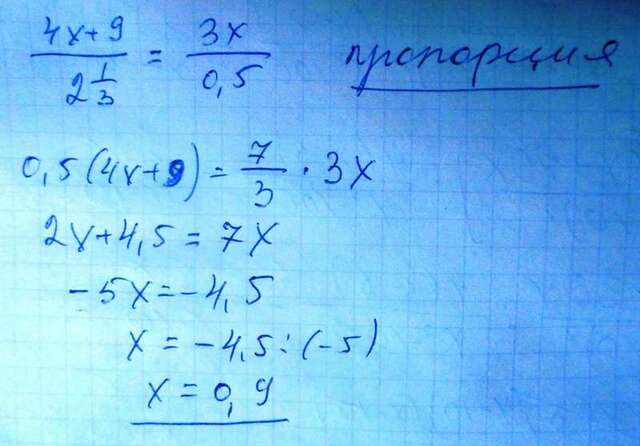 (4x+9)/(2 1/3) = 3x/0,5 пропорция
0,5(4x+9) = 7/3 · 3x
2x+4,5 = 7x
-5x = -4,5
x = -4,5 : (-5)
x = 0,9